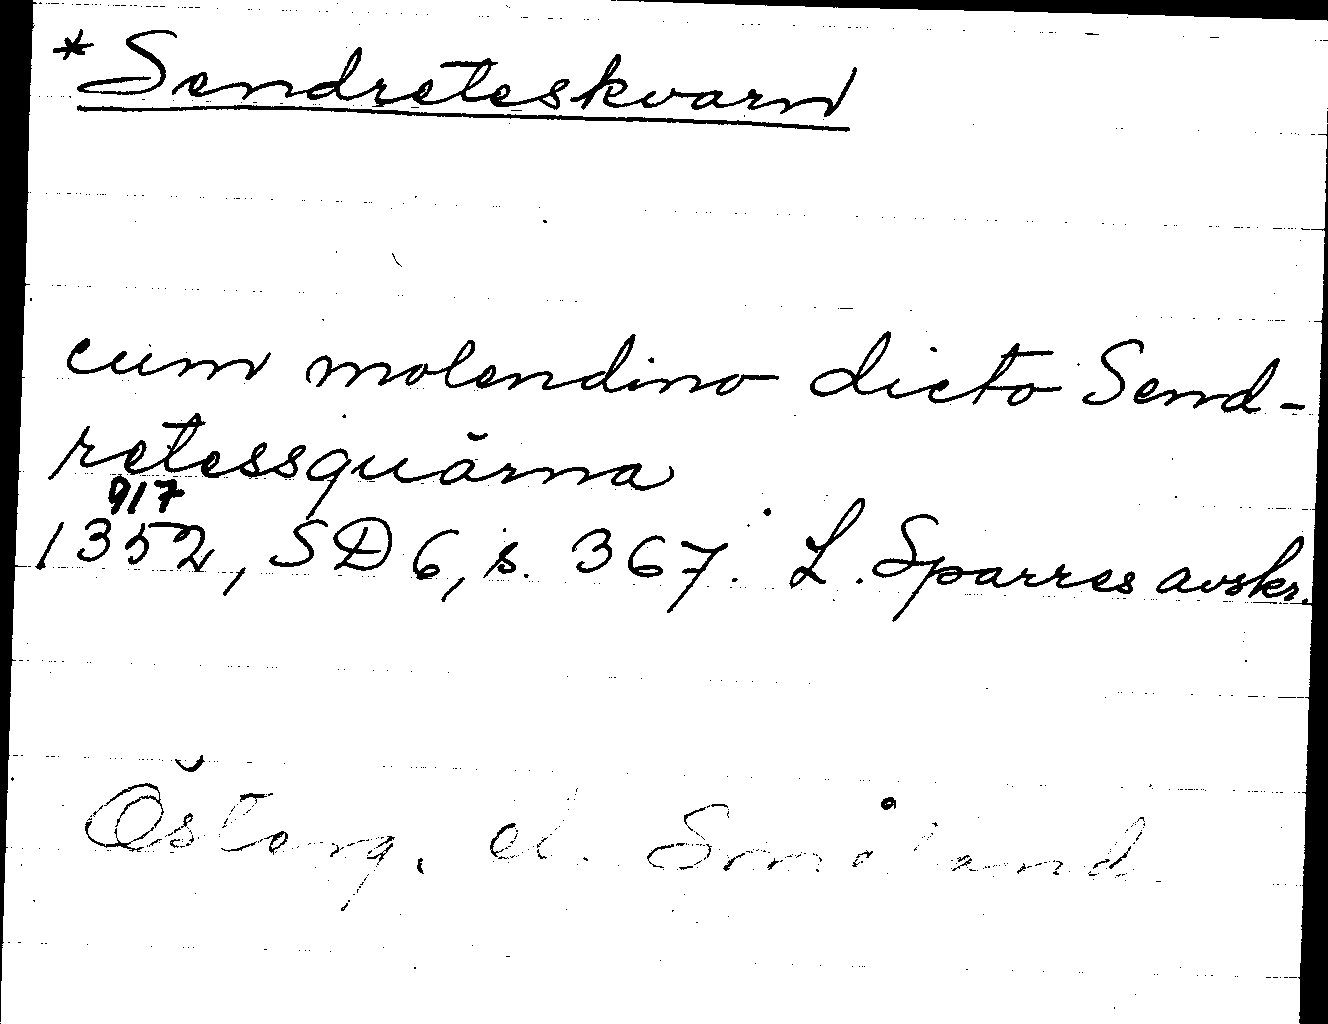 *Sendreteskvarn
cum molendino dicto Send-
retessquärna
9/7
1352, SD 6, s. 367. L. Sparres avskr.
Österg. el. Småland